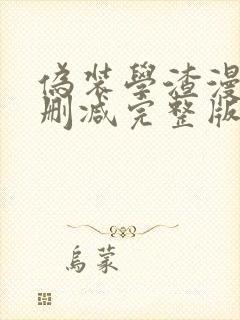 偽装學渣漫
刪減完整版
烏蒙